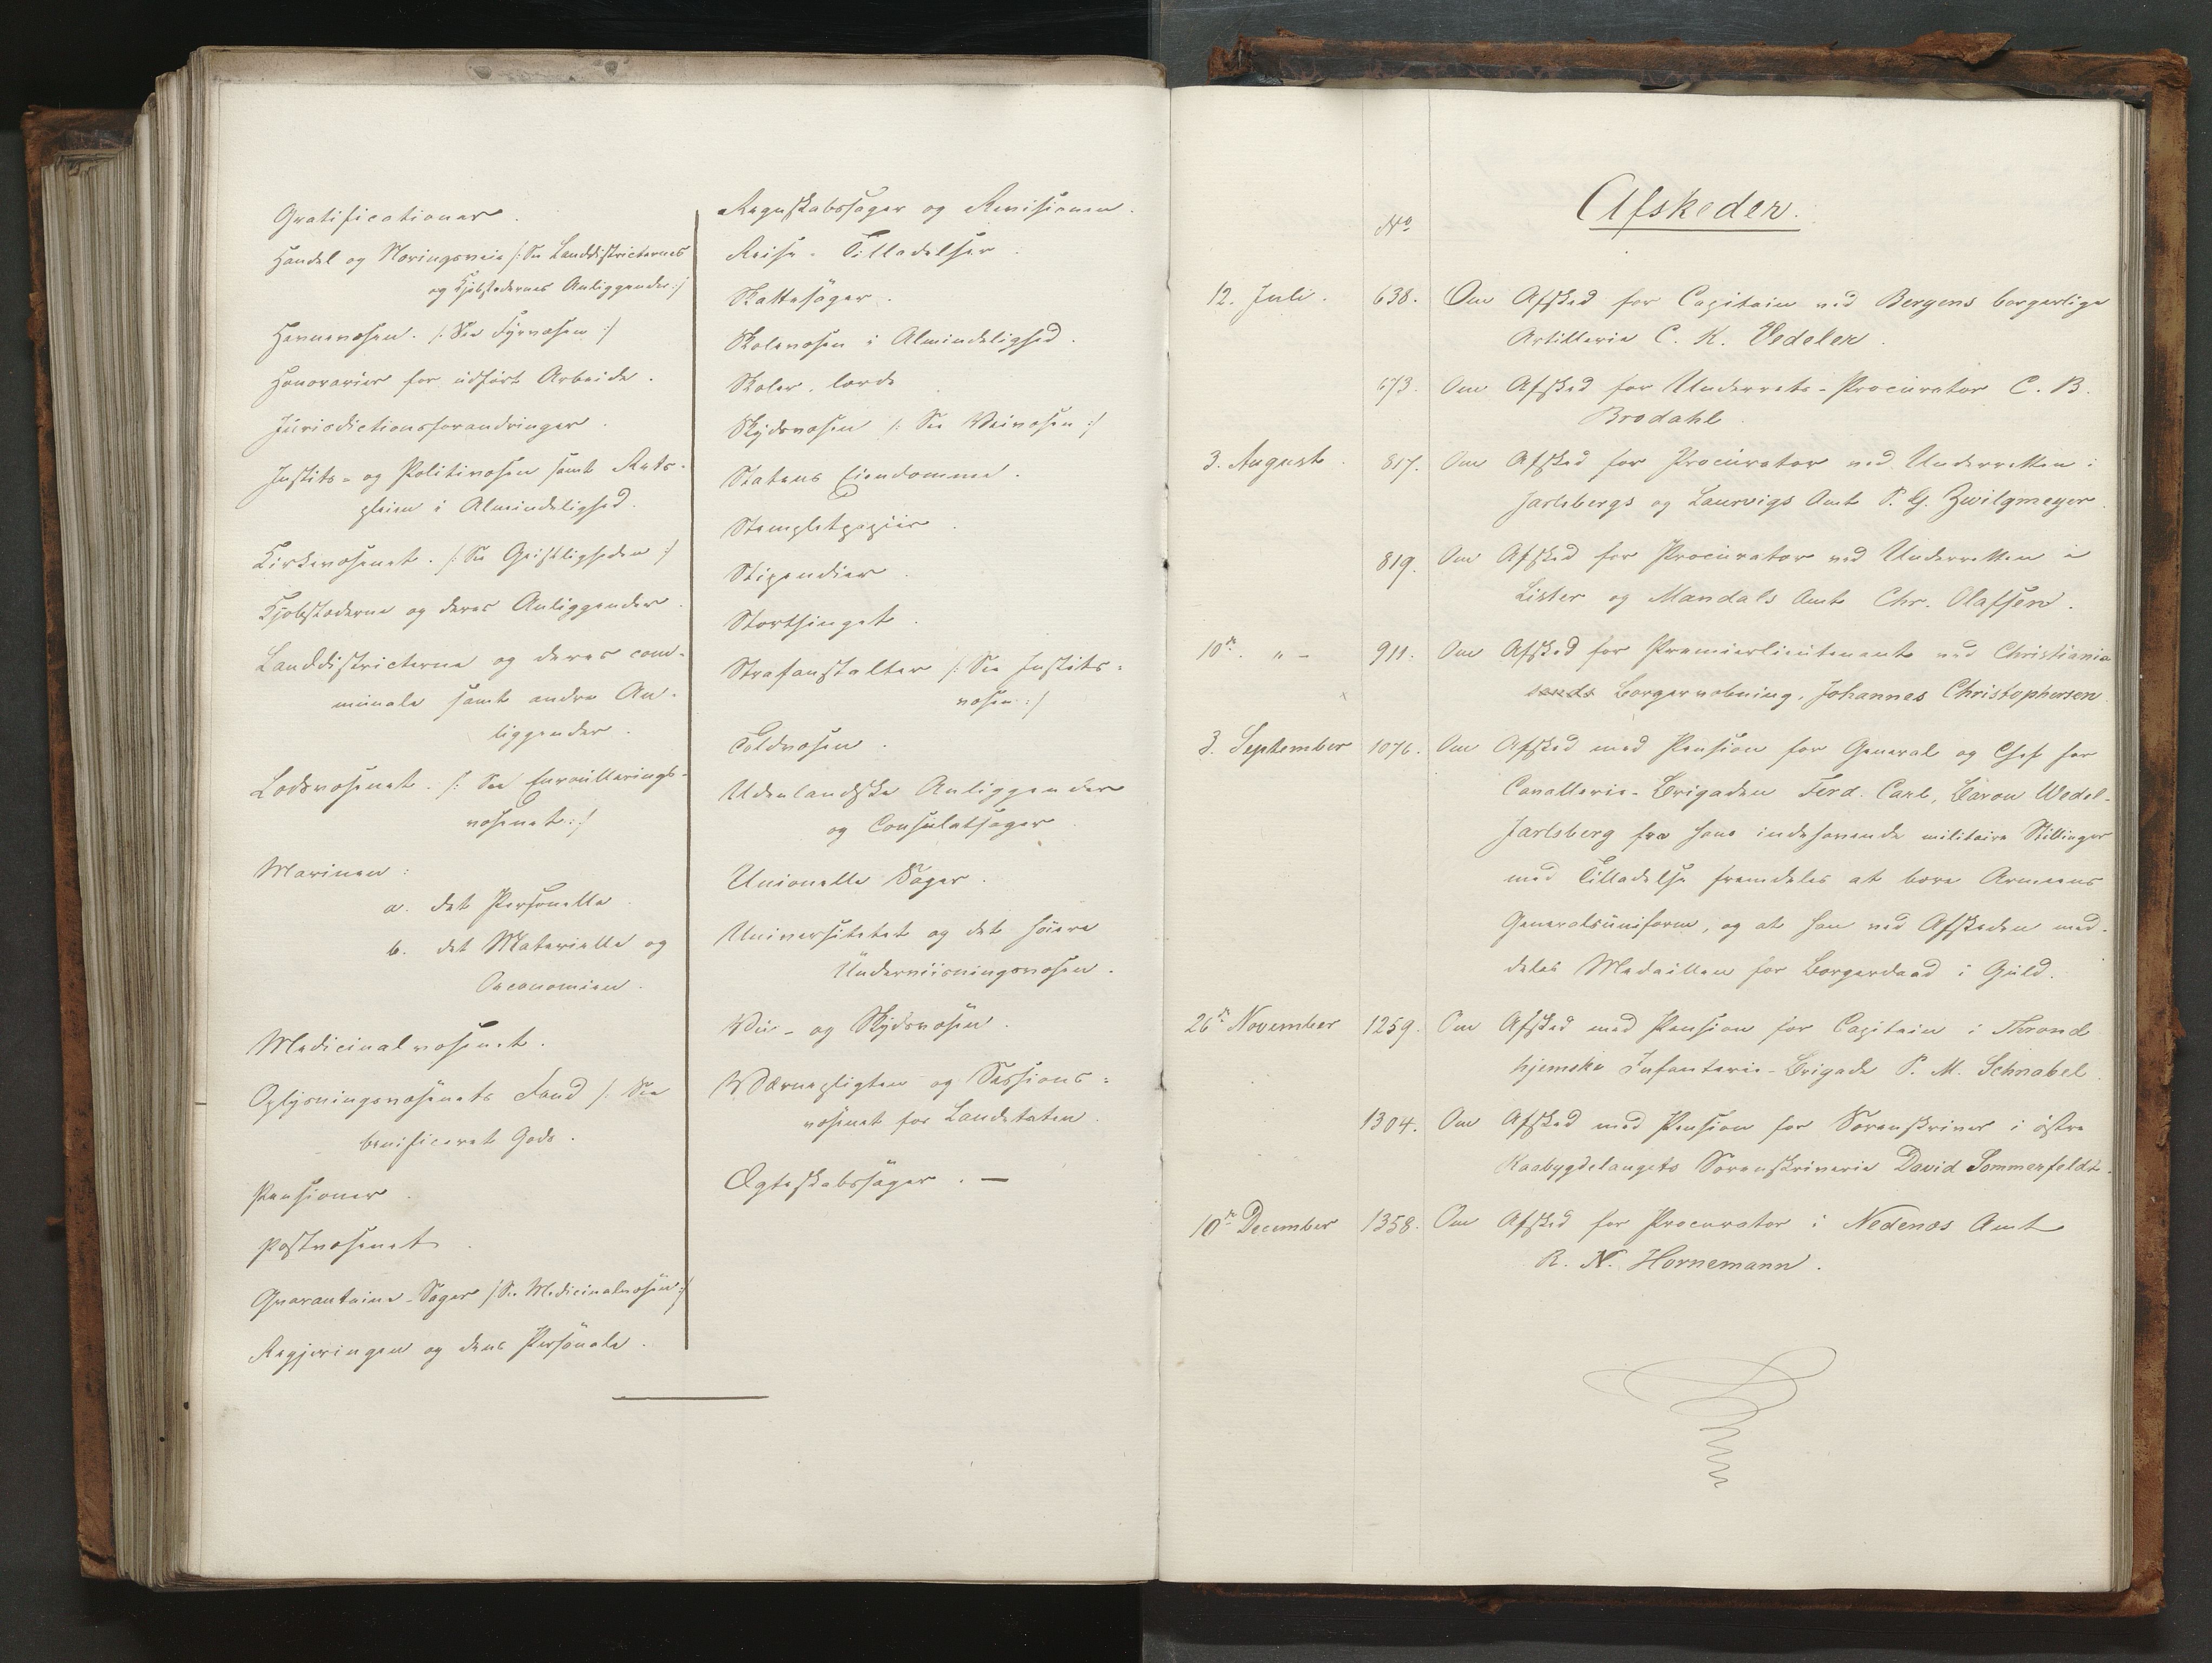 Gratificationer.
Handel og Næringsveie /: Se Landdistricternes
og Kjøbstædernes Anliggender :/
Havnevæsen. /: Se Fyrvæsen :/
Honorarier for udført Arbeide.
Jurisdictionsforandringer.
Justits- og Politivæsen samt Rets-
pleien i Almindelighed.
Kirkevæsenet. /: Se Geistligheden :/
Kjøbstæderne og deres Anliggender.
Landdistricterne og deres com-
munale samt andre An-
liggender.
Lodsvæsenet. /: See Enroullerings-
væsenet :/
Marinen:
a. det Personelle.
b. det Materielle og
Oeconomien.
Medicinalvæsenet.
Oplysningsvæsenets Fond /: See
benificeret Gods.
Pensioner.
Postvæsenet.
Qvarantaine-Sager /: Se Medicinalvæsen :/
Regjeringen og dens Personale.
Regnskabssager og Revisionen.
Reise-Tilladelser.
Skattesager.
Skolevæsen i Almindelighed.
Skoler, lærde
Skydsvæsen /: See Veivæsen :/
Statens Eiendomme.
Stempletpapiir.
Stipendier.
Storthinget.
Strafanstalter /: See Justits-
væsen :/
Toldvæsen.
Udenlandske Anliggender
og Consulatsager
Unionelle Sager.
Universitetet og det høiere
Underviisningsvæsen.
Vei- og Skydsvæsen.
Værnepligten og Sessions-
væsenet for Landetaten.
Ægteskabssager. —
Afskeder.
No
12. Juli. 638. Om Afsked for Capitain ved Bergens borgerlige
Artillerie C. K. Vedeler.
673. Om Afsked for Underrets-Procurator C. B.
Brodahl
3. August. 817. Om Afsked for Procurator ved Underretten i
Jarlsbergs og Laurvigs Amt P. G. Zwilgmeyer.
819. Om Afsked for Procurator ved Underretten i
Lister og Mandals Amt Chr. Olafsen.
10de " - 911. Om Afsked for Premierlieutenant ved Christiania
sands Borgervæbning, Johannes Christophersen
3. September 1076. Om Afsked med Pension for General og Chef for
Cavallerie-Brigaden Ferd. Carl, Baron Wedel-
Jarlsberg fra hans indehavende militaire Stillinger
med Tilladelse fremdeles at bære Armeens
Generalsuniform, og at han ved Afskeden med-
deles Medaillen for Borgerdaad i Guld.
26de November 1259. Om Afsked med Pension for Capitain i Thrond
hjemske Infanterie-Brigade P. M. Schnabel.
1304. Om Afsked med Pension for Sorenskriver i østre
Raabygdelaugets Sorenskriverie David Sommerfeldt.
10de December 1358. Om Afsked for Procurator i Nedenæs Amt
R. N. Hornemann.